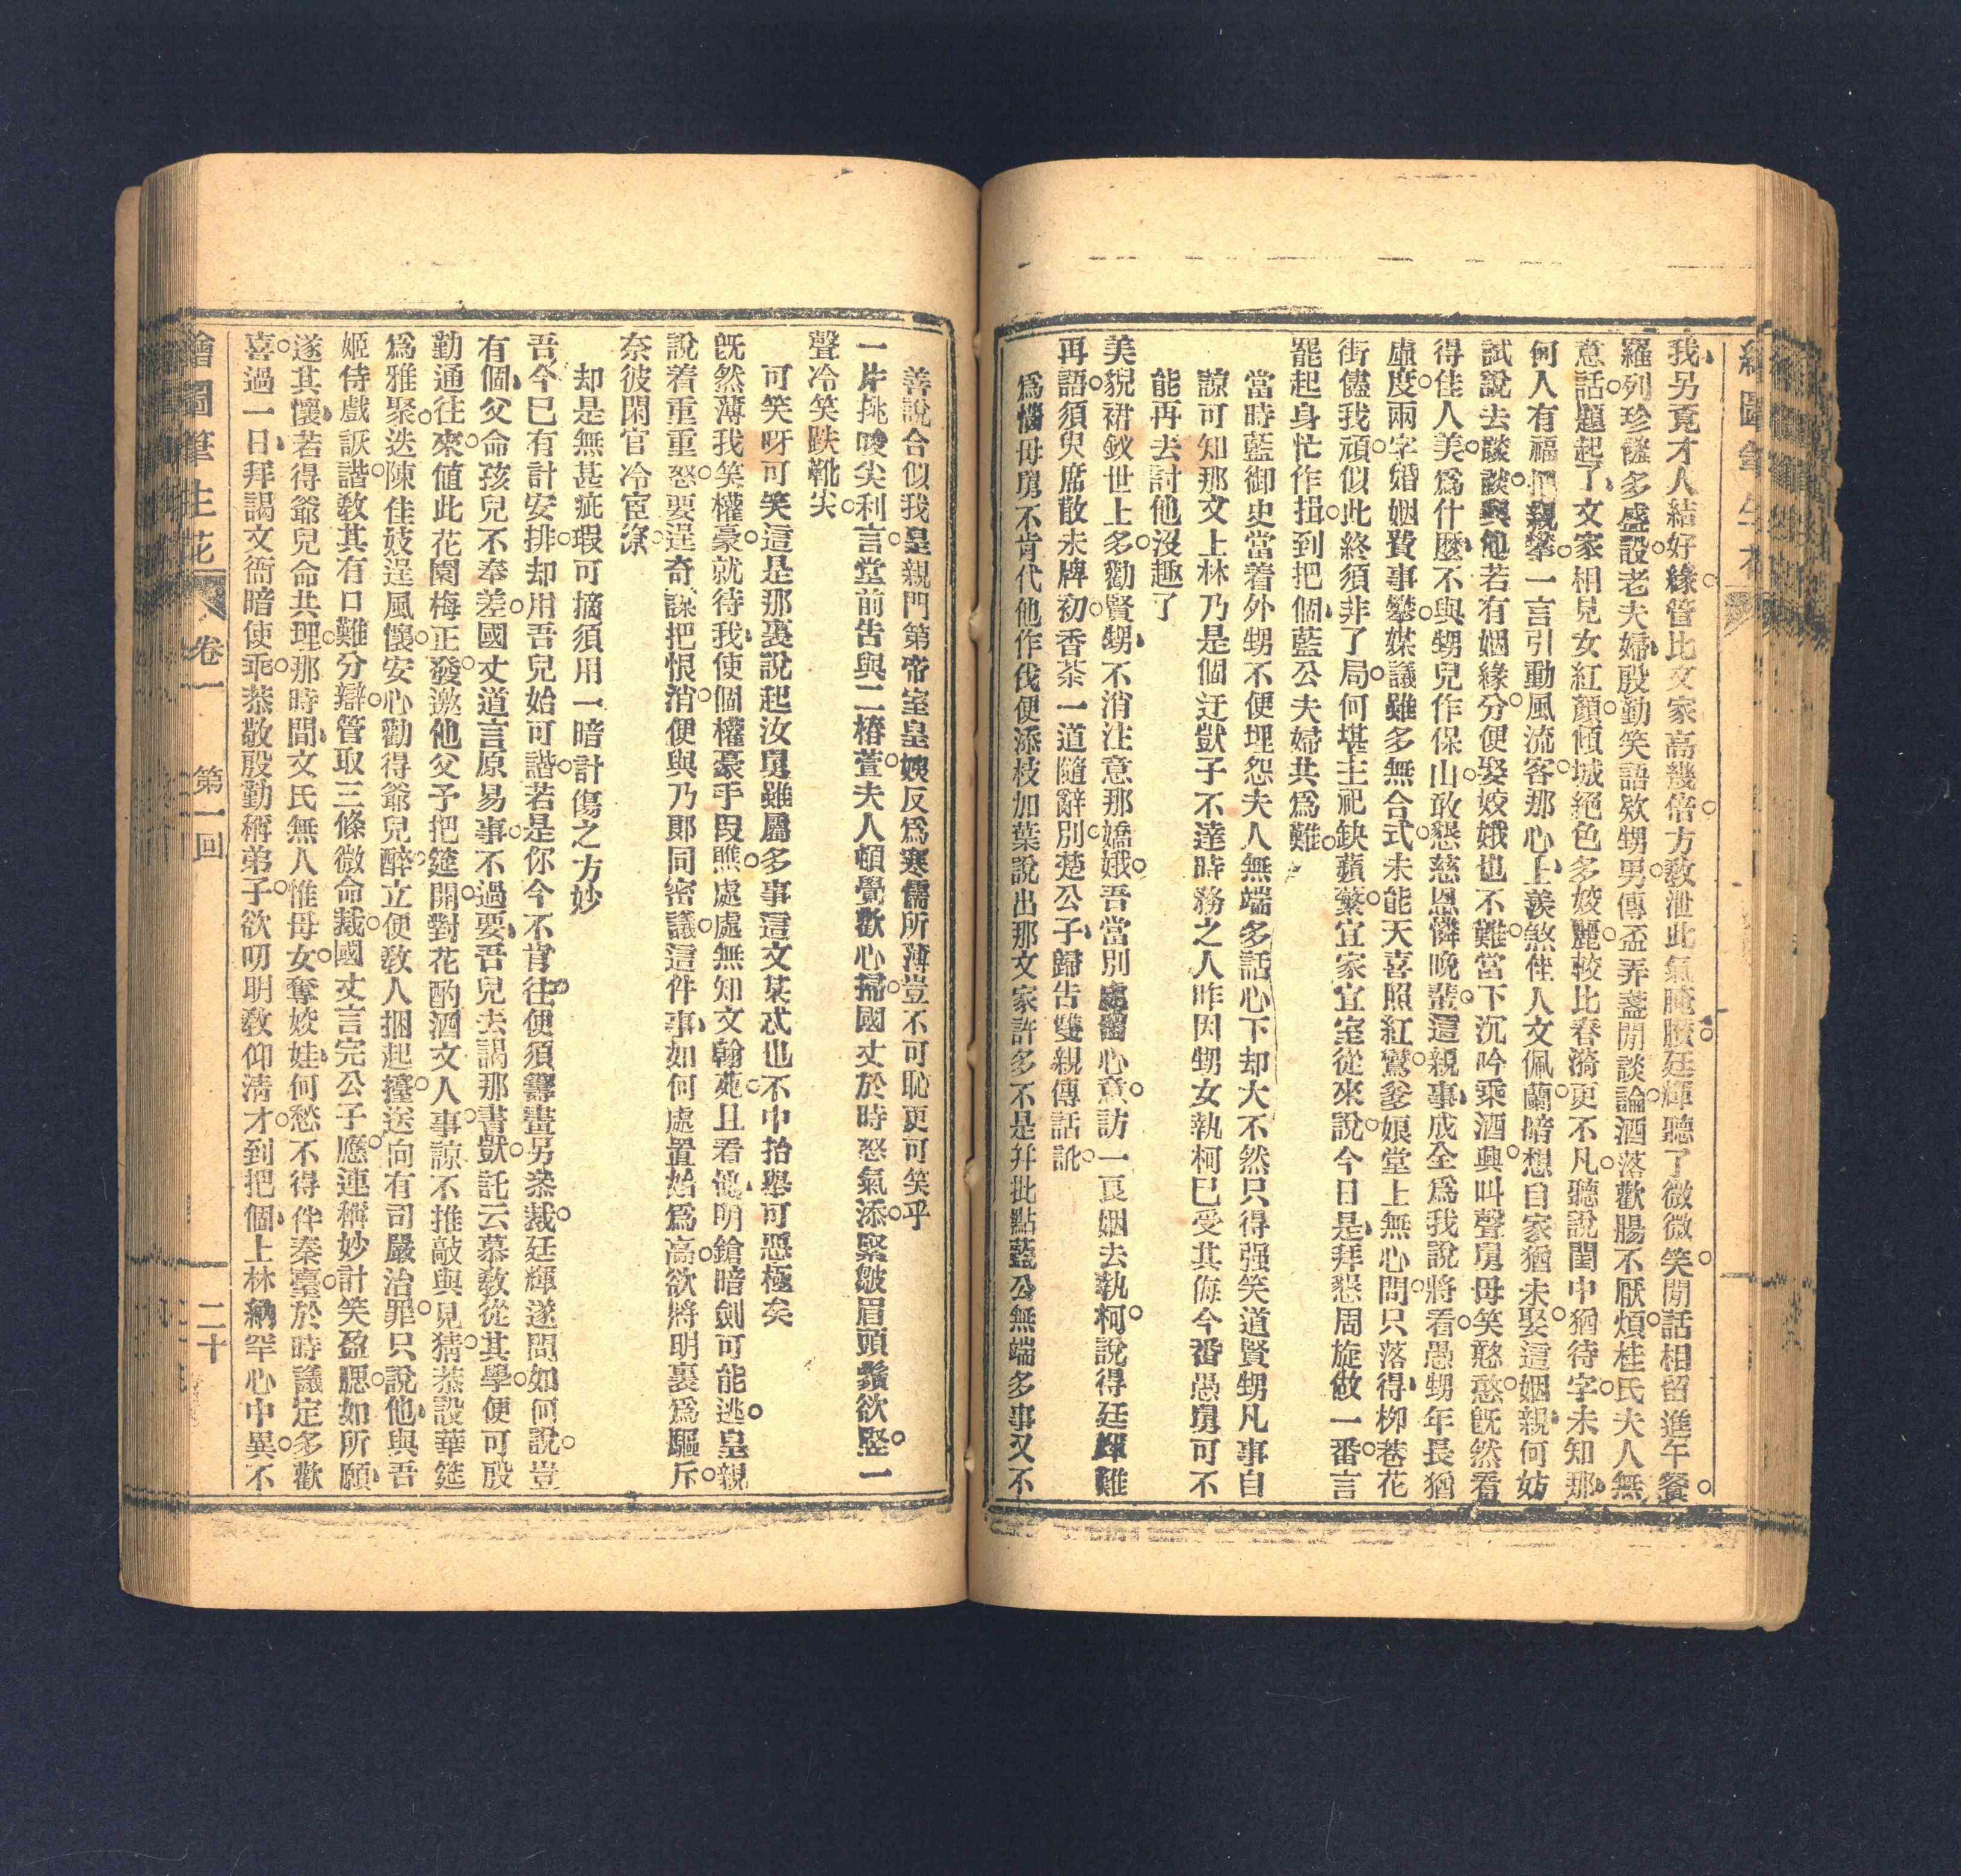 繪圖筆生花
我另竟才人結好緣管比文家高幾倍方教泄此氣腌臢廷輝聽了微微笑閒話相留進午餐
羅列珍饈多盛設老夫婦殷勤笑語欵甥男傳盃弄盞閒談論酒落歡腸不厭煩桂氏夫人無
意話題起了文家相見女紅顏傾城絕色多姣麗較比春漪更不凡聽說閨中猶待字未知那
何人有福把親攀一言引動風流客那心上羨煞佳人文佩蘭暗想自家猶未娶這姻親何妨
試說去談談與他若有姻緣分便娶姣娥也不難當下沉吟乘酒興叫聲舅母笑憨憨旣然看
得佳人美爲什麼不與甥兒作保山敢懇慈恩憐晚輩這親事成全爲我說將看愚甥年長猶
虛度兩字婚姻費事攀媒議雖多無合式未能天喜照紅鸞爹娘堂上無心問只落得柳巷花
街儘我頑似此終須非了局何堪主祀缺蘋蘩宜家宜室從來說今日是拜懇周旋做一番言
罷起身忙作揖到把個藍公夫婦共爲難
當時藍御史當着外甥不便埋怨夫人無端多話心下却大不然只得强笑道賢甥凡事自
諒可知那文上林乃是個迂獃子不達時務之人昨因甥女執柯已受其侮今番愚舅可不
能再去討他沒趣了
美貌裙釵世上多勸賢甥不消注意那嬌娥吾當別處留心意訪一良姻去執柯說得廷輝難
再語須臾席散未牌初香茶一道隨辭別楚公子歸告雙親傳話訛
爲惱母舅不肯代他作伐便添枝加葉說出那文家許多不是并批點藍公無端多事又不
善說合似我皇親門第帝室皇嫂反爲寒儒所薄豈不可恥更可笑乎
一片挑唆尖利言堂前告與二椿萱夫人頓覺歡心掃國丈於時怒氣添緊皺眉頭鬚欲竪一
聲冷笑跌靴尖
可笑呀可笑這是那裏說起汝舅雖屬多事這文某忒也不中抬舉可惡極矣
旣然薄我笑權豪就待我使個權豪手段瞧處處無知文翰苑且看他明鎗暗劍可能逃皇親
說着重重怒要逞奇謀把恨消便與乃郎同密議這件事如何處置始爲高欲將明裏爲驅斥
奈彼閑官冷宦寮
却是無甚疵瑕可摘須用一暗計傷之方妙
吾今已有計安排却用吾兒始可諧若是你今不肯往便須籌畫另桊裁廷輝遂問如何說豈
有個父命孩兒不奉差國丈道言原易事不過要吾兒去謁那書獃託云慕敎從其學便可殷
勤通往來値此花園梅正發邀他父予把筵開對花酌酒文人事諒不推敲與見猜恭設華筵
爲雅聚迭陳佳妓逞風懷安心勸得爺兒醉立便敎人捆起擡送向有司嚴治罪只說他與吾
姬侍戲詼諧敎其有口難分辯管取三條微命裁國丈言完公子應連稱妙計笑盈腮如所願
遂其懷若得爺兒命共理那時間文氏無人惟母女奪姣娃何愁不得伴秦臺於時議定多歡
喜過一日拜謁文衙暗使乖恭敬殷勤稱弟子欲叨明敎仰淸才到把個上林納罕心中異不
繪圖筆生花 卷一 第一回 二十